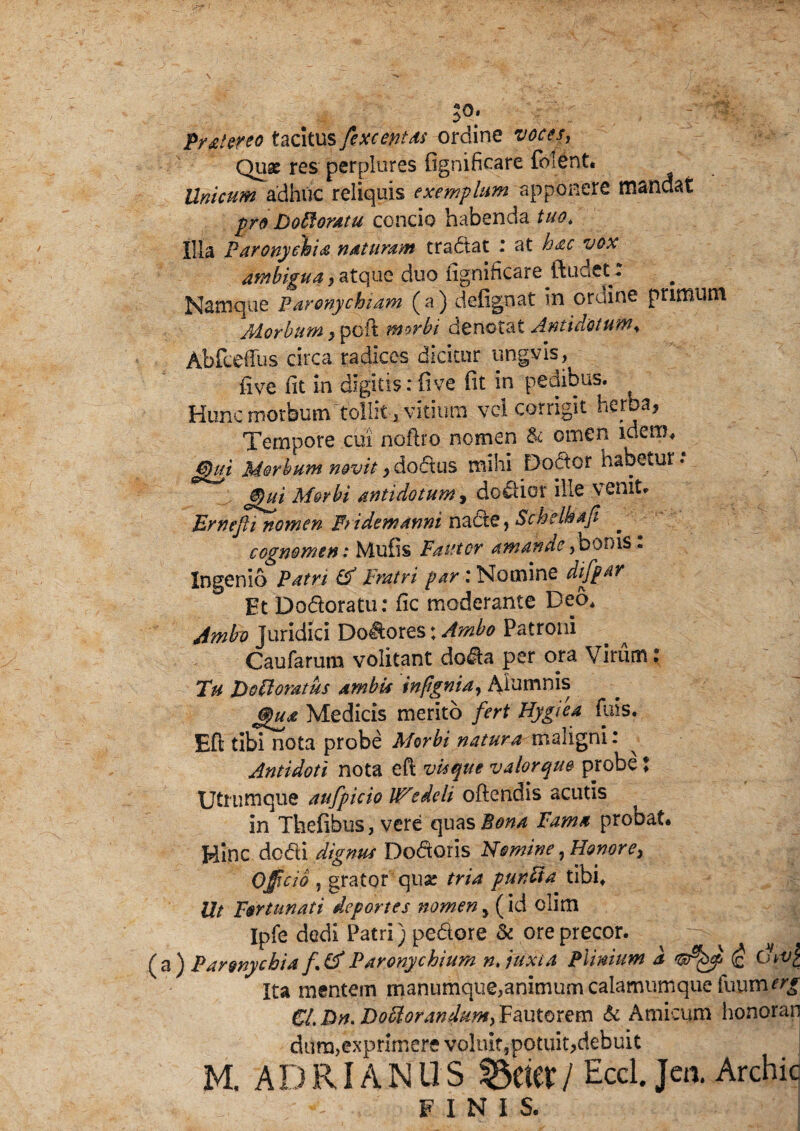 30.
Prætereo tacitus ſexcentas ordine voces,
Quæ res perplures ſignificare ſolent.
Unicum adhuc reliquis exemplum apponere mandat
pro Doctoratu concio habenda tuo.
Illa Paronychiæ naturam tractat : at hæc vox
ambigua, atque duo ſignificare ſtudet :
Namque Paronychiam (a) deſignat in ordine primum
Morbum, poſt morbi denotat Antidotum.
Abſceſſus circa radices dicitur ungvis,
ſive ſit in digitis : ſive ſit in pedibus.
Hunc morbum tollit, vitium vel corrigit herba,
Tempore cui noſtro nomen & omen idem.
Qui Morbum novit, doctus mihi Doctor habetur :
Qui Morbi antidotum, doctior ille venit.
Erneſti nomen Fridemanni nacte, Schelhaſi
cognomen : Muſis Fautor amande, bonis :
Ingenio Patri & Fratri par : Nomine diſpar
Et Doctoratu : ſic moderante Deo.
Ambo Juridici Doctores : Ambo Patroni
Cauſarum volitant docta per ora Virûm :
Tu Doctoratûs ambis inſignia, Alumnis
Quæ Medicis meritò fert Hygiéa ſuis.
Eſt tibi nota probe Morbi natura maligni :
Antidoti nota eſt visque valorque probe :
Utrumque auſpicio Wedeli oſtendis acutis
in Theſibus, verè quas Bona Fama probat.
Hinc docti dignus Doctoris Nomine, Honore,
Officio, grator quæ tria puncta tibi.
Ut Fortunati deportes nomen, (id olim
Ipſe dedi Patri) pectore & ore precor.
(a) Paronychia f. & Paronychium n. juxta Plinium à
Ita mentem manumque, animum calamumque ſuum erg
Cl. Dn. Doctorandum, Fautorem & Amicum honoran
dum, exprimere voluit, potuit, debuit
M. ADRIANUS Beier / Eccl. Jen. Archid
FINIS.